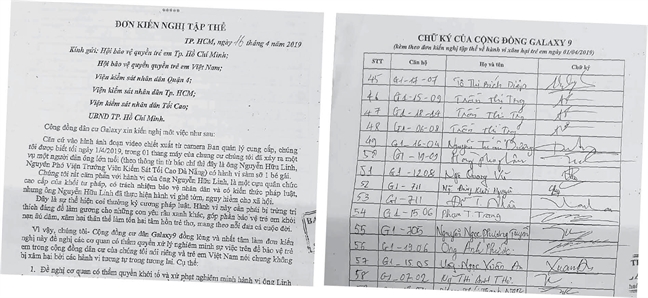 ĐƠN KIẾN NGHỊ TẬP THỂ
TP. HCM, ngày 16 tháng 4 năm 2019
Kính gửi: Hội bảo vệ quyền trẻ em Tp. Hồ Chí Minh;
Hội bảo vệ quyền quyền trẻ em Việt Nam;
Viện kiểm sát nhân dân Quận 4;
Viện kiểm sát nhân dân Tp. HCM;
Viện kiểm sát nhân dân Tối Cao;
UBND TP. Hồ Chí Minh.
Cộng đồng dân cư Galaxy xin kiến nghị một việc như sau:
Căn cứ vào hình ảnh đoạn video chiết xuất từ camera Ban quản lý cung cấp, chúng
tôi được biết tối ngày 1/4/2019, trong 01 thang máy của chung cư chúng tôi đã xảy ra một
vụ một người đàn ông lớn tuổi (theo thông tin từ báo chí thì đây là ông Nguyễn Hữu Linh,
nguyên Phó Viện Trưởng Viện Kiểm Sát Tối Cao Đà Nẵng) có hành vi sàm sỡ 1 bé gái.
Chúng tôi rất căm phẫn với hành vi của ông Nguyễn Hữu Linh, là một cựu quan chức
cao cấp của khối tư pháp, có trách nhiệm bảo vệ nhân dân và có kiến thức pháp luật,
nhưng ông Nguyễn Hữu Linh đã thực hiện hành vi ghê tởm, nguy hiểm cho xã hội.
Đây là sự thể hiện coi thường kỷ cương pháp luật. Hành vi này cần phải bị trừng trị
thích đáng để làm gương cho những con yêu râu xanh khác, góp phần bảo vệ trẻ em khỏi
Vì vậy, chúng tôi- Cộng đồng dân cư Galaxy9 đồng lòng và nhất tâm làm đơn kiến
nghị này đề nghị các cơ quan có thẩm quyền xử lý nghiêm minh sự việc trên để bảo vệ trẻ
em trong cộng đồng dân cư của chúng tôi nói riêng và trẻ em Việt Nam nói chung không
bị xâm hại bởi các hành vi tương tự trong tương lai. Cụ thể:
1. Đề nghị cơ quan có thẩm quyền khởi tố và xử phạt nghiêm minh hành vi ông Linh
CHỮ KÝ CỦA CỘNG ĐỒNG GALAXY 9
(kèm theo đơn kiến nghị tập thể về hành vi xâm hại trẻ em ngày 01/04/2019)
STT Căn hộ Họ và tên Chữ ký
45 G1-17-07 Tô Thị Bích Diệp
46 G1-15-09 Trần Thị Trg
47 G1-18-14 Trần Thị Trg
48 G1-06-08 Trần Thị Trg
49 G1-16-04 Nguyễn
50 G1-19-09
51 G1-1208 Ngô Quang Vũ
52 G1-711
53 G1-711
54 G1-15.06 Phạm T Trang
55 G1-205 Nguyễn Ngọc Phương Thuyên
56 G1-19.06 Ông Anh Phước
57 G1-15.05
58 G1-07-02